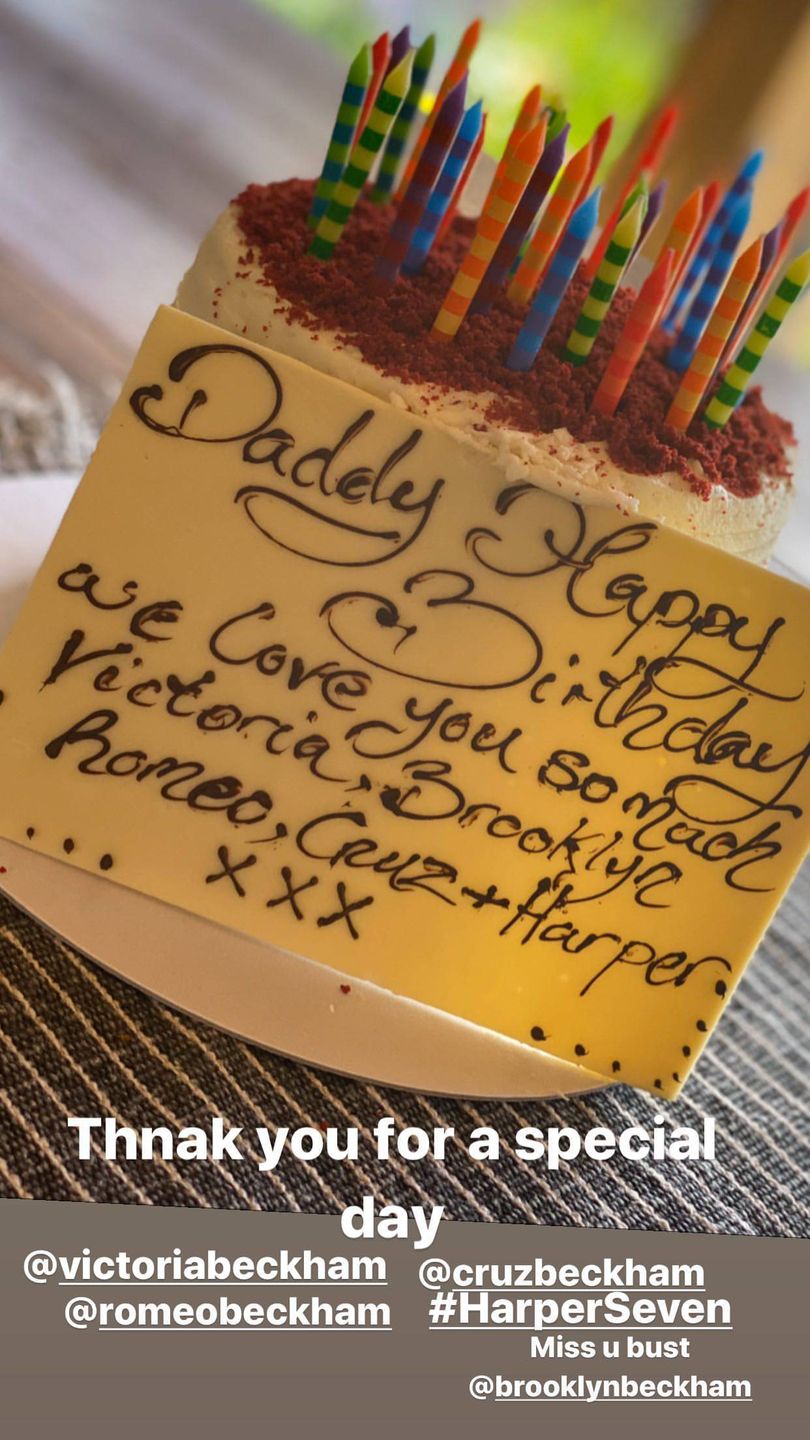 Daddy Happy
Birthday
we Love you so much
Victoria, Brooklyn
Romeo, Cruz + Harper.
x x x
Thnak you for a special
day
@victoriabeckham @cruzbeckham
@romeobeckham #HarperSeven
Miss u bust
@brooklynbeckham